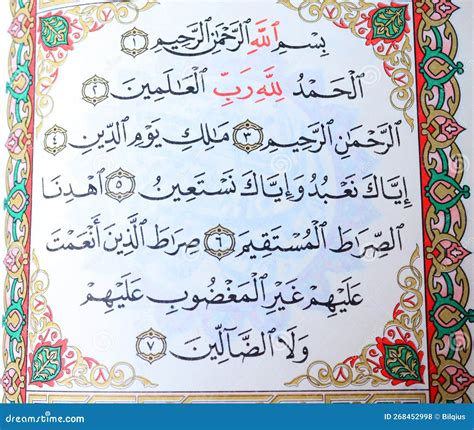 بِسْمِ ٱللَّهِ ٱلرَّحْمَٰنِ ٱلرَّحِيمِ ١
ٱلْحَمْدُ لِلَّهِ رَبِّ ٱلْعَالَمِينَ ٢
ٱلرَّحْمَٰنِ ٱلرَّحِيمِ ٣ مَالِكِ يَوْمِ ٱلدِّينِ ٤
إِيَّاكَ نَعْبُدُ وَإِيَّاكَ نَسْتَعِينُ ٥ ٱهْدِنَا
ٱلصِّرَاطَ ٱلْمُسْتَقِيمَ ٦ صِرَاطَ ٱلَّذِينَ أَنْعَمْتَ
عَلَيْهِمْ غَيْرِ ٱلْمَغْضُوبِ عَلَيْهِمْ
وَلَا ٱلضَّآلِّينَ ٧
dreamstime.com
ID 268452998 © Bilqius